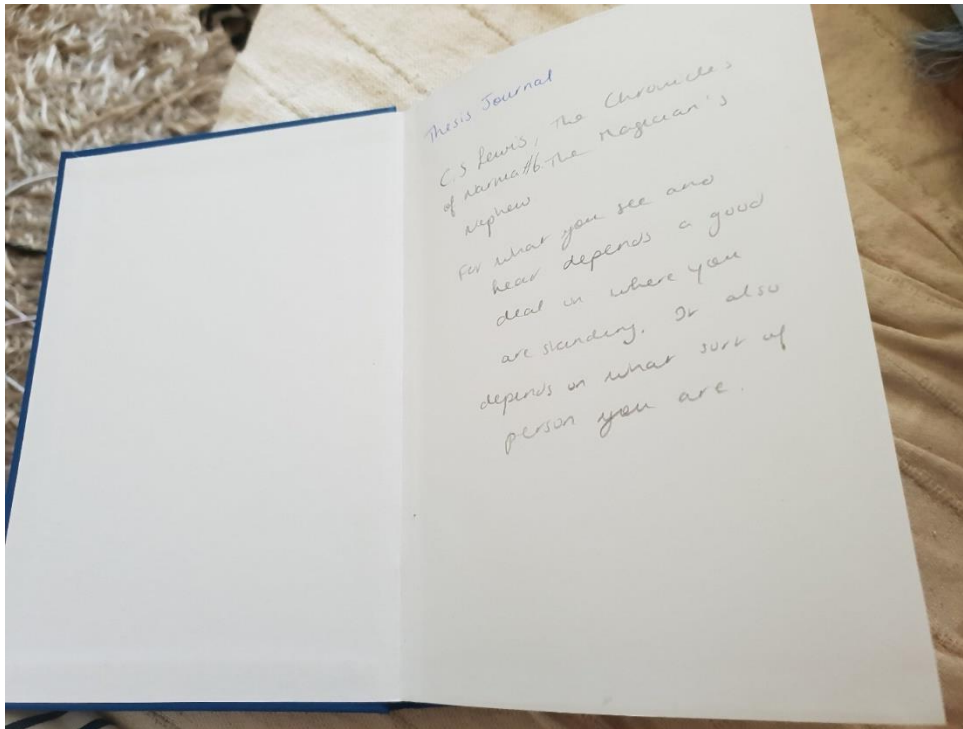 Thesis Journal
C.S Lewis, The Chronicles
of Narnia #6 The Magician's
Nephew
For what you see and
hear depends a good
deal on where you
are standing. It also
depends on what sort of
person you are.